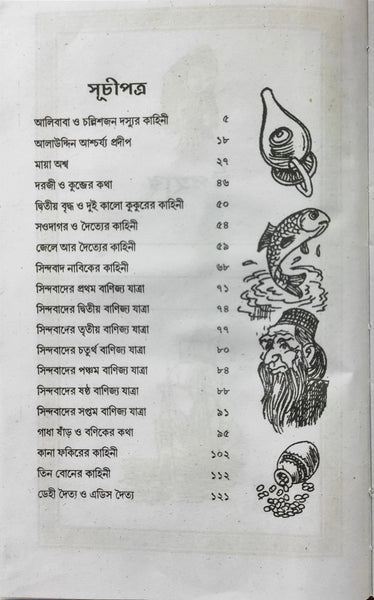 সূচীপত্র
আলিবাবা ও চল্লিশজন দস্যুর কাহিনী ৫
আলাউদ্দিন আশ্চর্য্য প্রদীপ ১৮
মায়া অশ্ব ২৭
দরজী ও কুব্জের কথা ৪৬
দ্বিতীয় বৃদ্ধ ও দুই কালো কুকুরের কাহিনী ৫০
সওদাগর ও দৈত্যের কাহিনী ৫৪
জেলে আর দৈত্যের কাহিনী ৫৯
সিন্দবাদ নাবিকের কাহিনী ৬৮
সিন্দবাদের প্রথম বাণিজ্য যাত্রা ৭১
সিন্দবাদের দ্বিতীয় বাণিজ্য যাত্রা ৭৪
সিন্দবাদের তৃতীয় বাণিজ্য যাত্রা ৭৭
সিন্দবাদের চতুর্থ বাণিজ্য যাত্রা ৮০
সিন্দবাদের পঞ্চম বাণিজ্য যাত্রা ৮৪
সিন্দবাদের ষষ্ঠ বাণিজ্য যাত্রা ৮৮
সিন্দবাদের সপ্তম বাণিজ্য যাত্রা ৯১
গাধা ষাঁড় ও বণিকের কথা ৯৫
কানা ফকিরের কাহিনী ১০২
তিন বোনের কাহিনী ১১২
ডেহী দৈত্য ও এডিস দৈত্য ১২১